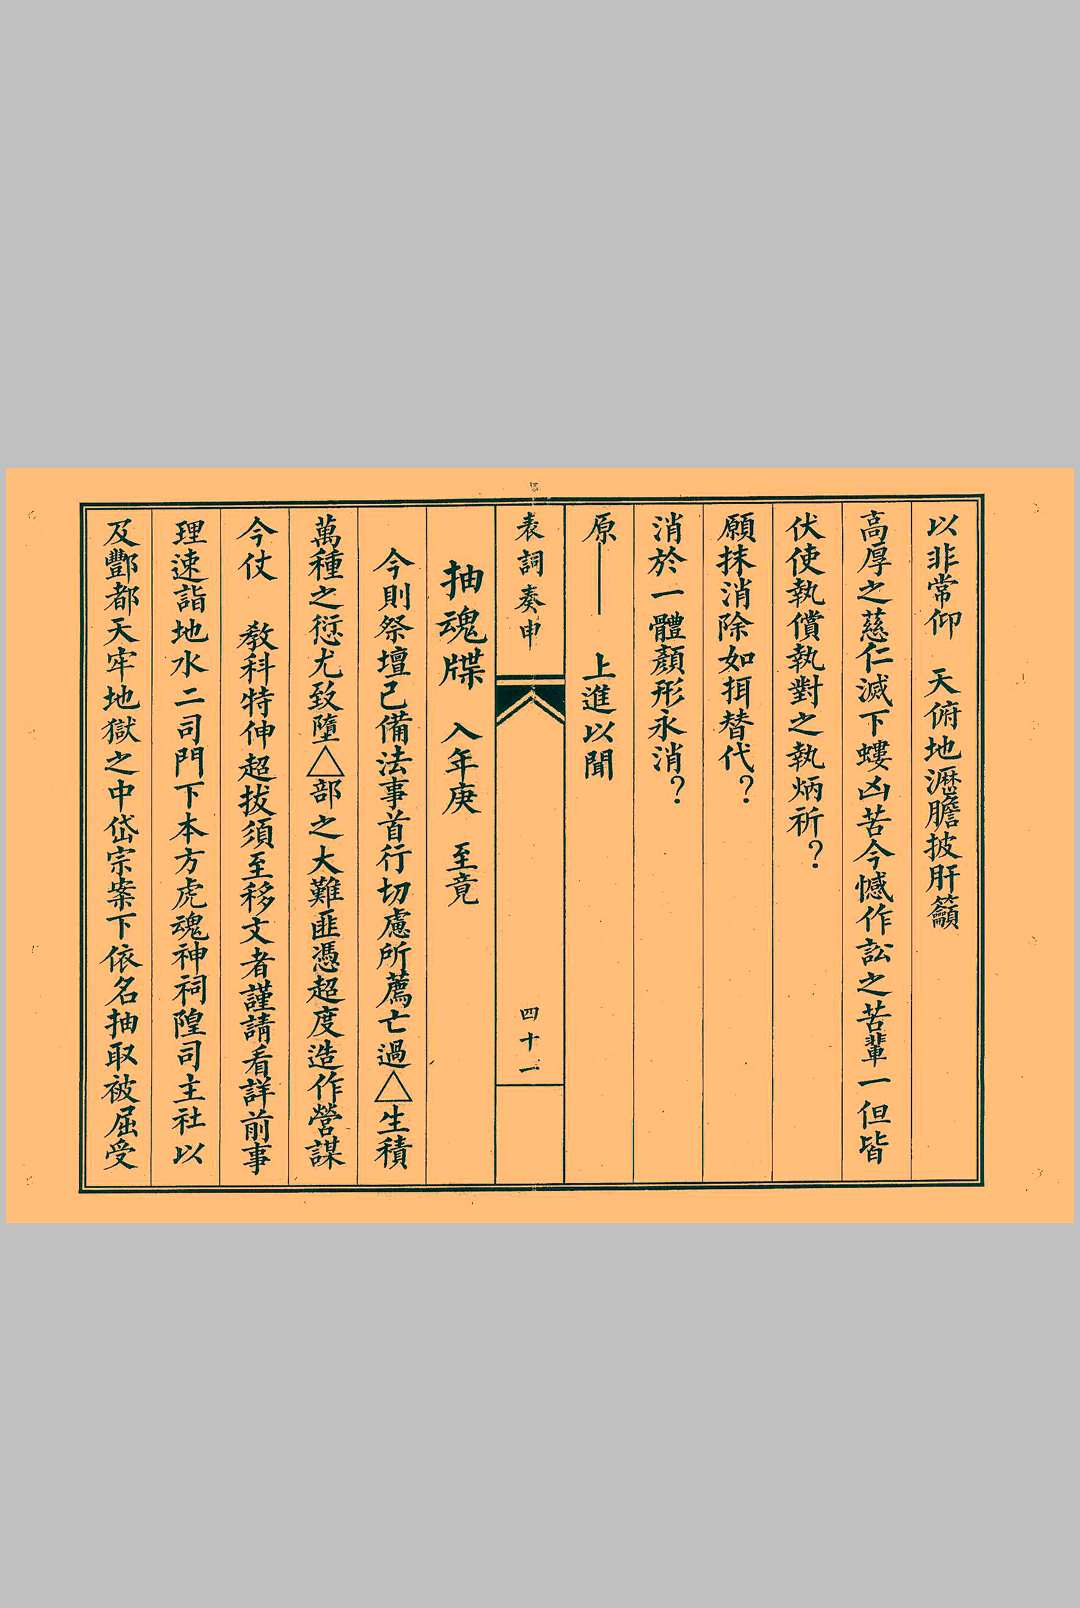 以非常仰　天俯地瀝膽披肝籲
高厚之慈仁滅下螻凶苦今憾作訟之苦輩一但皆
伏使執償執對之執炳祈？
願抹消除如挕替代？
消於一體顏形永消？
原——　上進以聞
表詞奏申
四十一
抽魂牒　入年庚　至竟
今則祭壇已備法事首行切慮所薦亡過△生積
萬種之愆尤致墮△部之大難匪憑超度造作營謀
今仗　教科特伸超拔須至移文者謹請看詳前事
理速詣地水二司門下本方虎魂神祠隍司主社以
及酆都天牢地獄之中岱宗案下依名抽取被屈受